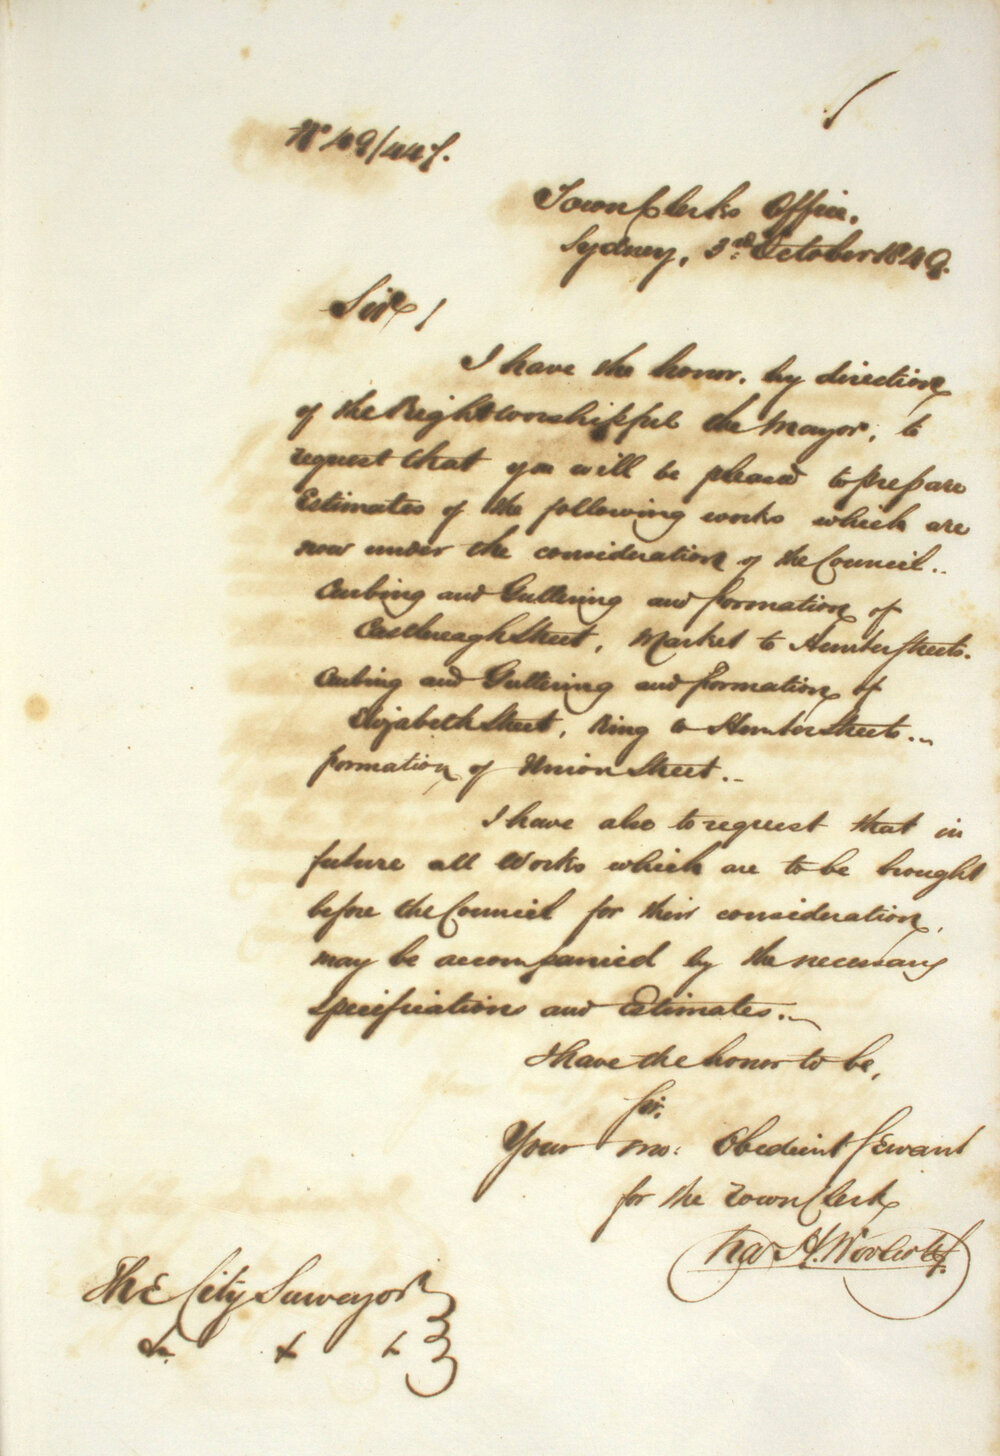 No 49/447.
Town Clerks Office,
Sydney, 3rd October 1849.
Sir /
I have the honor, by direction
of the Right Worshipful the Mayor, to
request that you will be pleased to prepare
Estimates of the following works which are
now under the consideration of the Council..
Curbing and Guttering and formation of
Castlereagh Street, Market to Hunter Streets.
Curbing and Guttering and formation of
Elizabeth Street, King to Hunter Streets..
formation of Union Street..
I have also to request that in
future all Works which are to be brought
before the Council for their consideration,
may be accompanied by the necessary
specifications and Estimates..
I have the honor to be,
Sir,
Your mo: Obedient Servant
for the Town Clerk
Chas H. Woolcott
The City Surveyor
&c &c &c